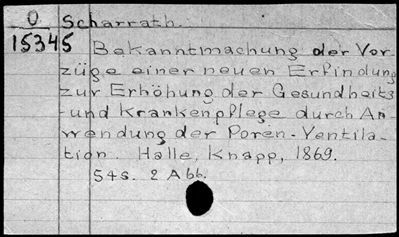 O Scharrath.
15345 Bekanntmachung der Vor-
züge einer neuen Erfindung
zur Erhöhung der Gesundheits
-und Krankenpflege durch An-
wendung der Poren-Ventila-
tion. Halle, Knapp, 1869.
54s. 2 Abb.